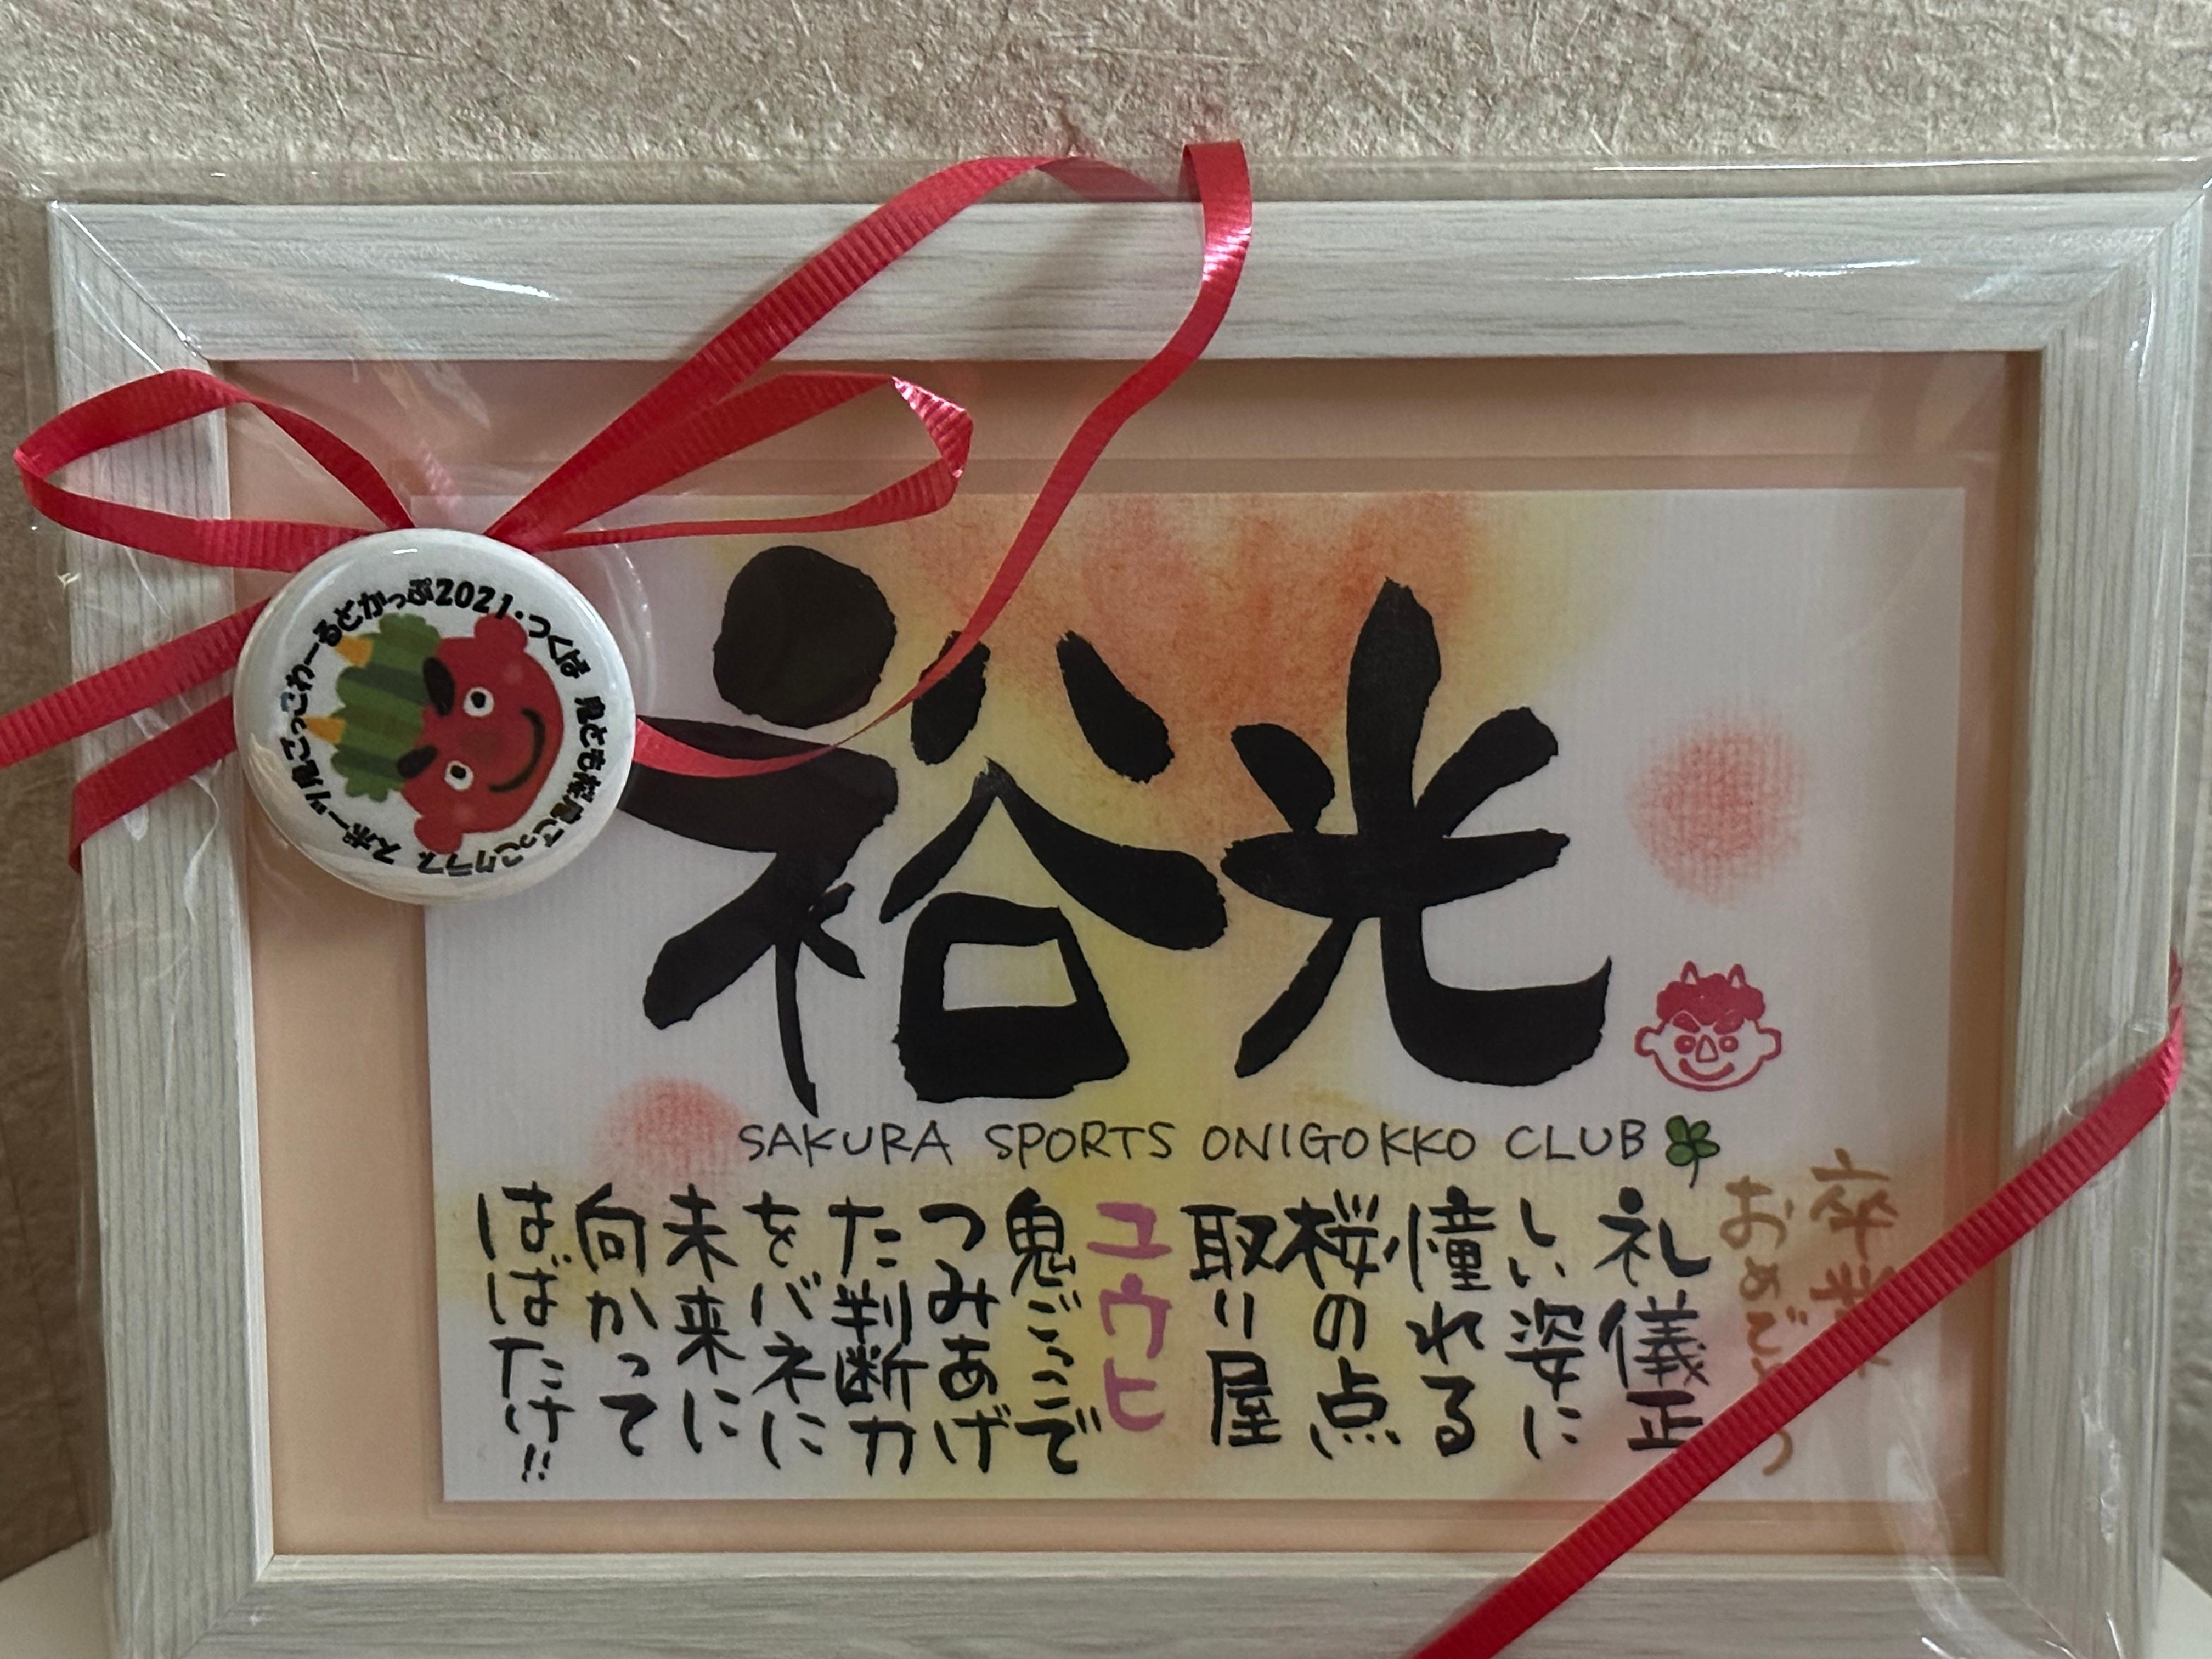 裕光
SAKURA SPORTS ONIGOKKO CLUB
卒業
おめでとう
礼儀正
しい姿に
憧れる
桜の点
取り屋
ユウヒ
鬼ごっこで
つみあげ
た判断力
をバネに
未来に
向かって
はばたけ!!
スポーツ鬼ごっこわーるどかっぷ2021・つくば
鬼ごっこクラブ